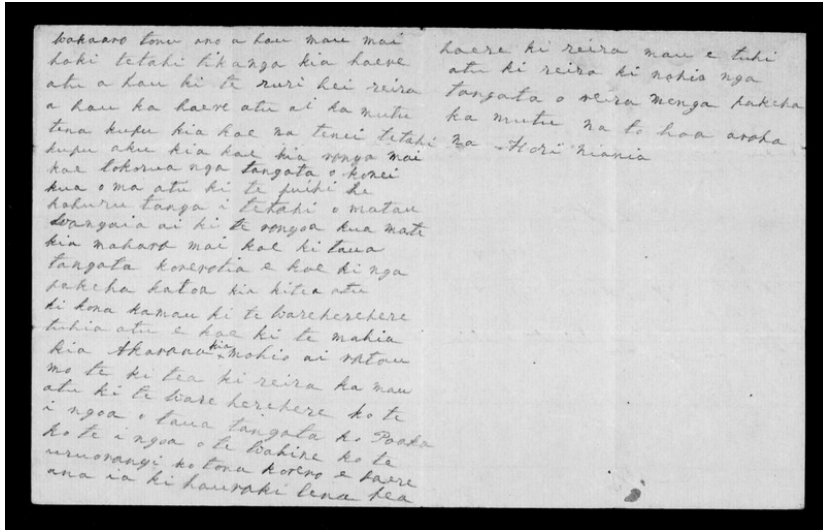 wakaaro tonu ano a hau mau mai
hoki tetahi tikanga kia haere
atu a hau ki te ruri hei reira
a hau ka haere atu ai ka mutu
tena kupu kia koe na tenei tetahi
kupu aku kia koe kia rongo mai
koe tokorua nga tangata o konei
kua o ma atu ki te puihi he
kohuru tanga i tetahi o matau
wangaia ai ki te rongoa kua mate
kia maharo mai koe ki taua
tangata korerotia e koe ki nga
pakeha katoa kia kitea atu
ki kona kamau ki te wareherehere
tuhia atu e koe ki te mahia
kia Akarana kia mohio ai ratou
mo te ki tea ki reira ka mau
atu ki te ware herehere ko te
i ngoa o taua tangata ko Paaka
ko te i ngoa o te wahine ko te
uruorangi ko tona korero e haere
ana ia ki hauraki tena hea
haere ki reira mau e tuhi
atu ki reira ki mohio nga
tangata o reira menga pakeha
ka mutu na to hoa aroha
na Hori Niania